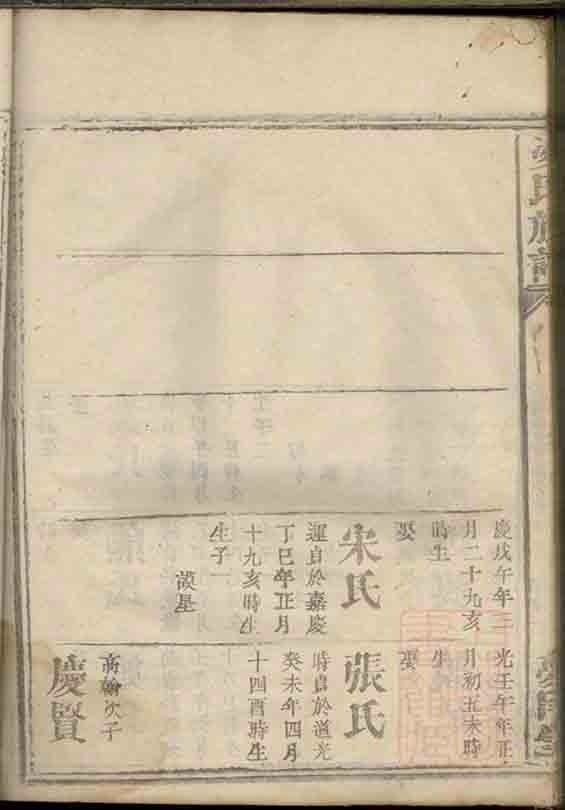 氏族譜
慶戊午年三
月二十九亥
時生
娶
宋氏
運自於嘉慶
丁巳年正月
十九亥時生
生子一
光壬午年正
月初五未時
生
娶
張氏
時自於道光
癸未年四月
十四酉時生
高翰次子
慶賢